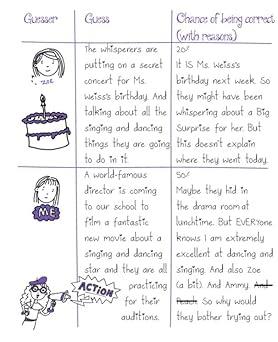 Guesser
Guess
Chance of being correct
(with reasons)
ZOE
The whisperers are
putting on a secret
concert for Ms.
Weiss's birthday. And
talking about all the
singing and dancing
things they are going
to do in it.
20%
It IS Ms. Weiss's
birthday next week. So
they might have been
whispering about a Big
Surprise for her. But
this doesn't explain
where they went today.
ME
ACTION
A world-famous
director is coming
to our school to
film a fantastic
new movie about a
singing and dancing
star and they are all
practicing
for their
auditions.
50%
Maybe they hid in
the drama room at
lunchtime. But EVERyone
knows I am extremely
excellent at dancing and
singing. And also Zoe
(a bit). And Ammy. And
Peach. So why would
they bother trying out?